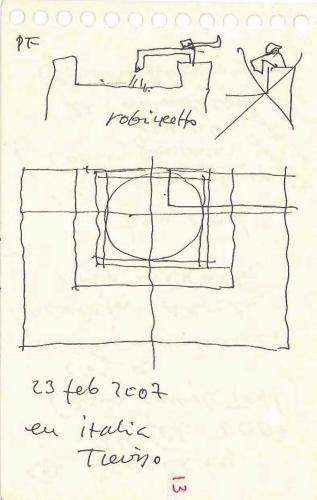 PF
robinetto
23 feb 2007
en italia
Treviso
13